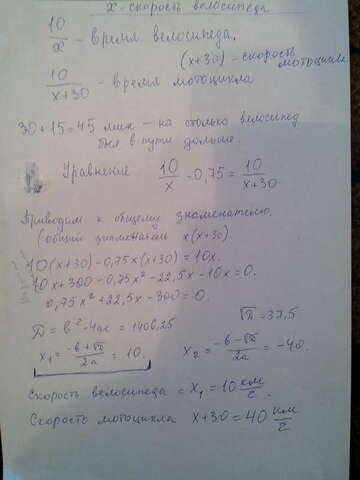 x - скорость велосипеда
10/x - время велосипеда.
(x+30) - скорость мотоцикла
10/x+30 - время мотоцикла
30+15=45 мин - на столько велосипед
был в пути дольше.
Уравнение 10/x - 0,75 = 10/x+30
Приводим к общему знаменателю.
(общий знаменатель x(x+30).
10(x+30) - 0,75x(x+30) = 10x.
10x+300-0,75x²-22,5x-10x=0.
0,75x²+22,5x-300=0.
D = b²-4ac = 1406,25 √D = 37,5
x₁ = -b+√D/2a = 10. x₂ = -b-√D/2a = -40.
Скорость велосипеда = x₁ = 10 км/г.
Скорость мотоцикла x+30 = 40 км/г